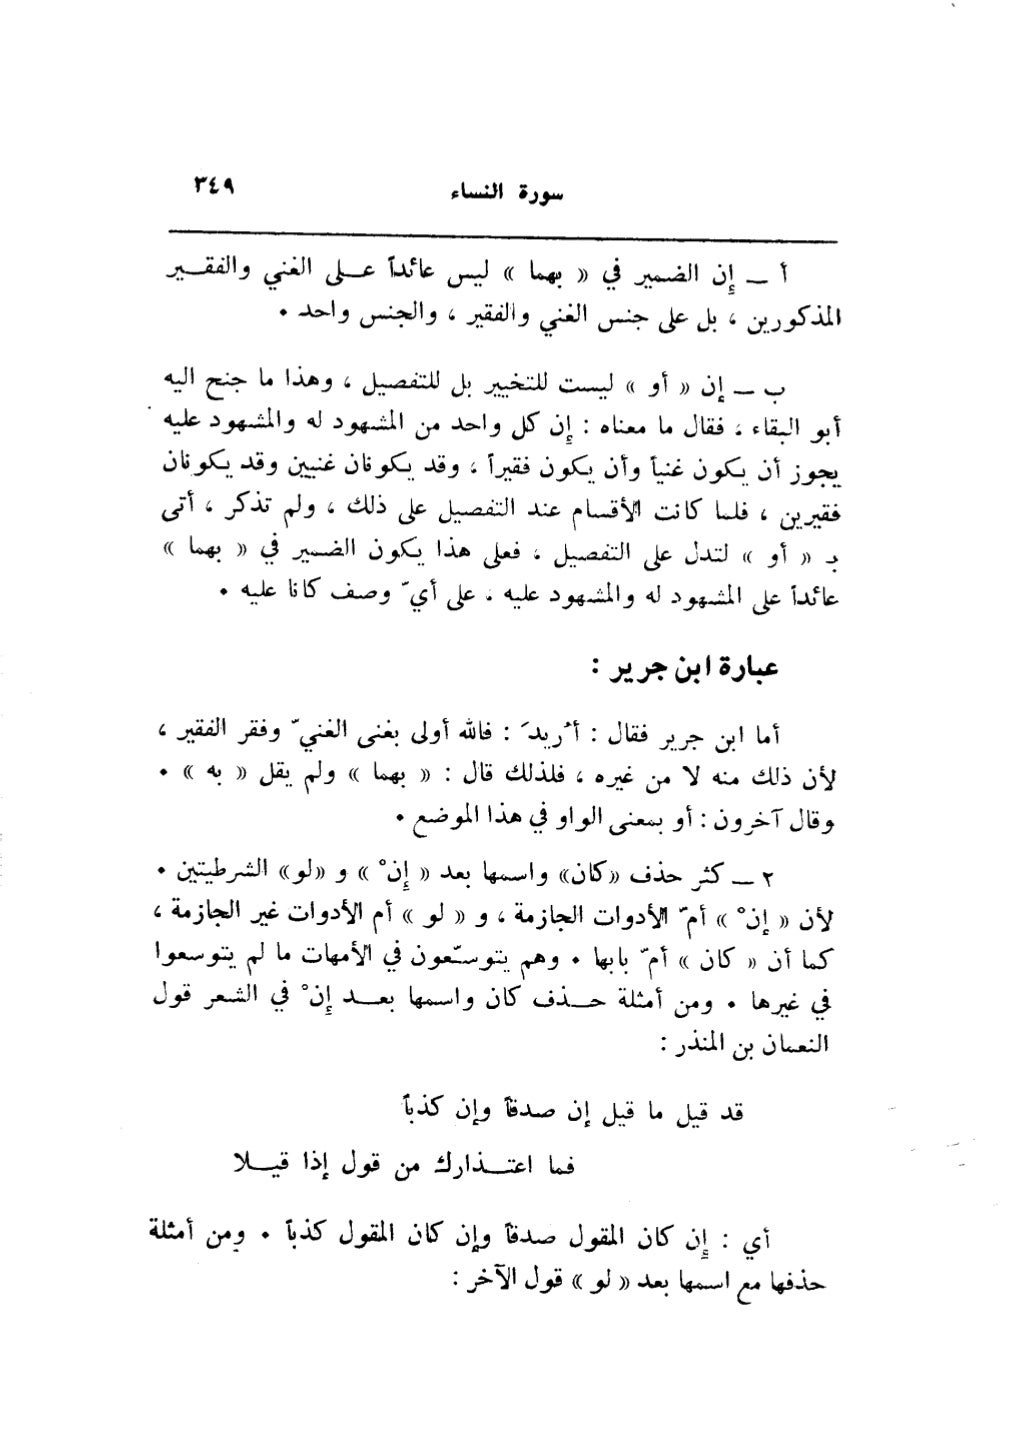 سورة النساء ٣٤٩
أ ــ إِن الضمير في « بهما » ليس عائداً على الغني والفقير
المذكورين ، بل على جنس الغني والفقير ، والجنس واحد .
ب ــ إن « أو » ليست للتخيير بل للتفصيل ، وهذا ما جنح اليه
أبو البقاء ، فقال ما معناه : إِن كل واحد من المشهود له والمشهود عليه
يجوز أن يكون غنياً وأن يكون فقيراً ، وقد يكونان غنيين وقد يكونان
فقيرين ، فلما كانت الأقسام عند التفصيل على ذلك ، ولم تذكر ، أتى
بـ « أو » لتدل على التفصيل ، فعلى هذا يكون الضمير في « بهما »
عائداً على المشهود له والمشهود عليه ، على أيّ وصف كانا عليه .
عبارة ابن جرير :
أما ابن جرير فقال : أُريدَ : فالله أولى بغنى الغنيّ وفقر الفقير ،
لأن ذلك منه لا من غيره ، فلذلك قال : « بهما » ولم يقل « به » .
وقال آخرون : أو بمعنى الواو في هذا الموضع .
٢ ــ كثر حذف «كان» واسمها بعد « إِنْ » و «لو» الشرطيتين .
لأن « إنْ » أمّ الأدوات الجازمة ، و « لو » أم الأدوات غير الجازمة ،
كما أن « كان » أمّ بابها . وهم يتوسّعون في الأمهات ما لم يتوسعوا
في غيرها . ومن أمثلة حذف كان واسمها بعد إِنْ في الشعر قول
النعمان بن المنذر :
قد قيل ما قيل إن صدقاً وإن كذباً
فما اعتذارك من قول إذا قيلا
أي : إِن كان المقول صدقاً وإن كان المقول كذباً . ومن أمثلة
حذفها مع اسمها بعد « لو » قول الآخر :